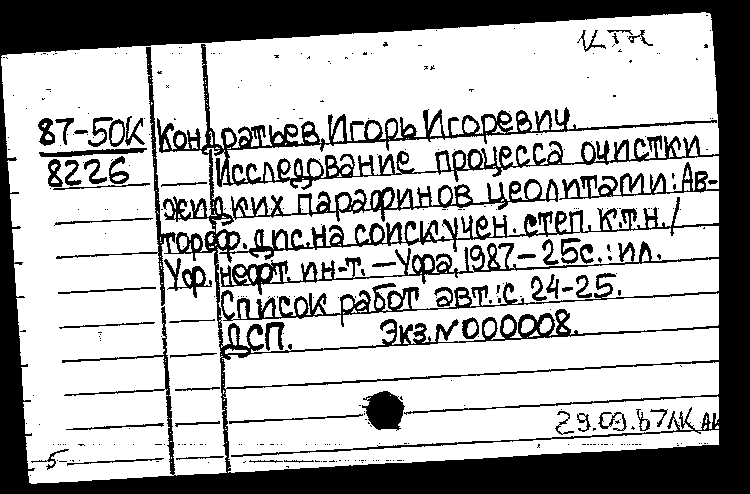 КТН
87-50К
8226
Кондратьев, Игорь Игоревич.
Исследование процесса очистки
жидких парафинов цеолитами: Ав-
тореф. дис. на соиск. учен. степ. к.т.н. /
Уф. нефт. ин-т. — Уфа, 1987. — 25с.: ил.
Список работ авт.: с. 24-25.
ДСП. Экз. N 000008.
29.09.87 ЛК
5